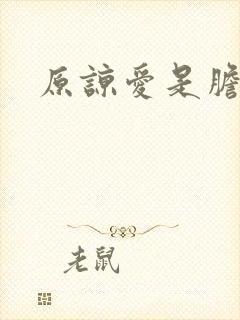 原諒愛是膽
老鼠